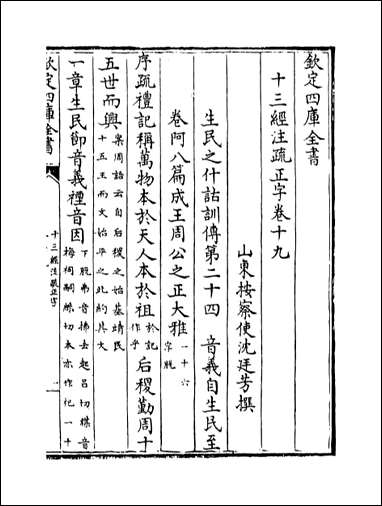 欽定四庫全書
十三經注疏正字卷十九
山東按察使沈廷芳撰
生民之什詁訓傳第二十四　音義自生民至
卷阿八篇成王周公之正大雅一十六
字脫
序疏禮記稱萬物本於天人本於祖於記
作乎
后稷勤周十
五世而興案周語云自后稷之始基靖民
十五王而文始平之此約其文
一章生民節音義禋音因下脫弗音拂去起吕切禖音
梅祠嗣絲切本亦作祀一十
欽定四庫全書
十三經注疏正字
一